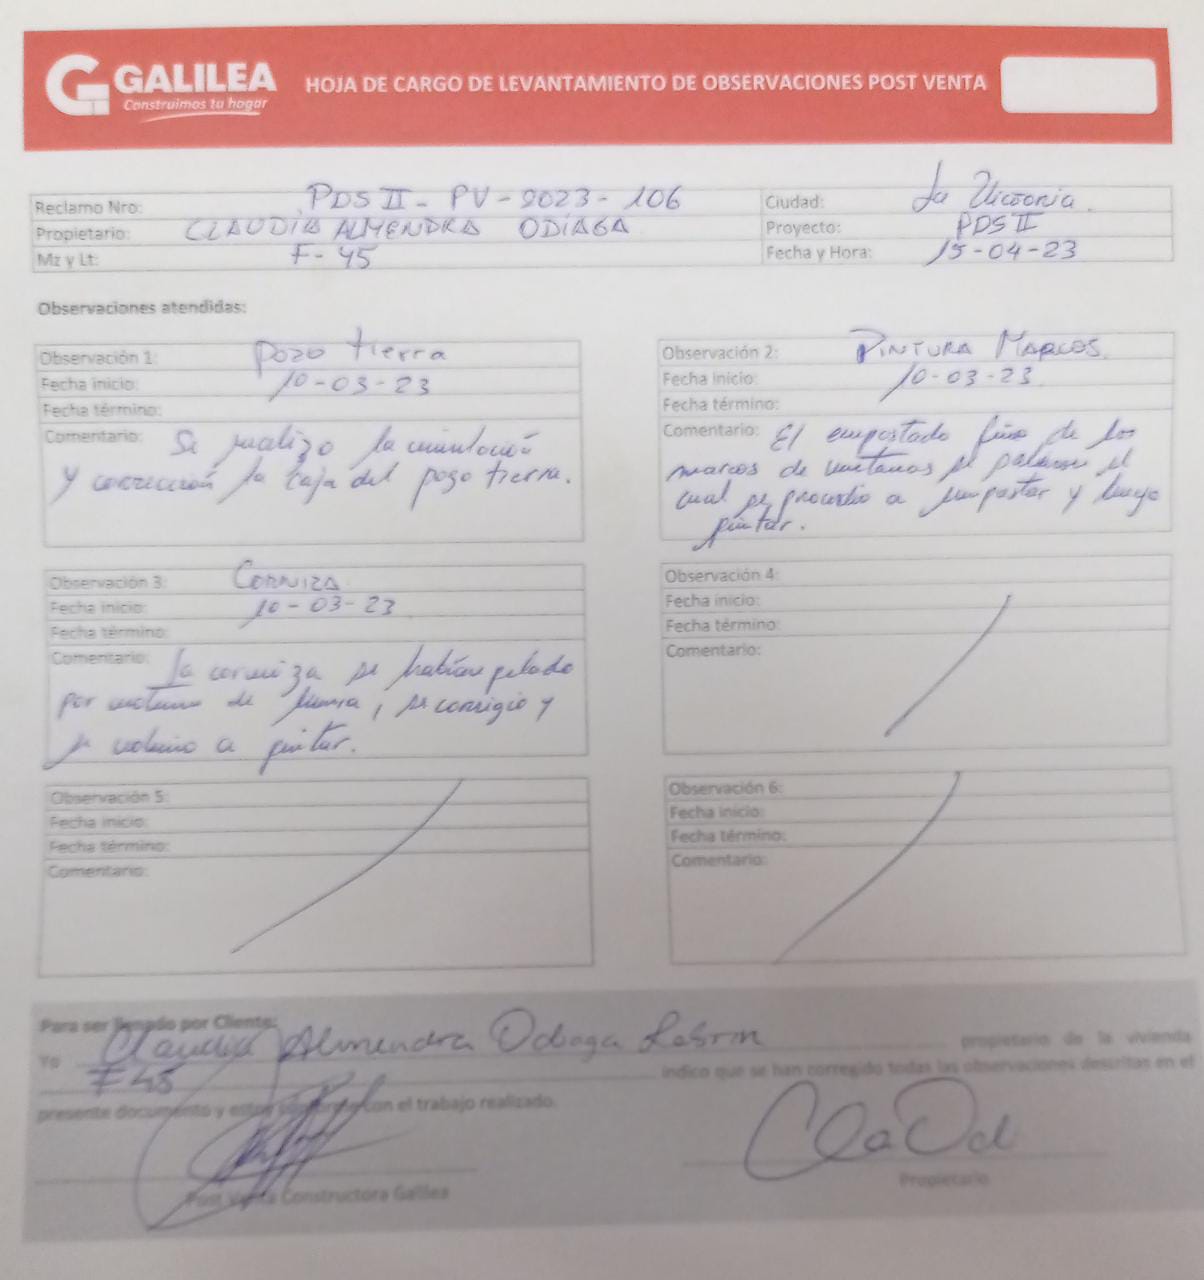 GALILEA
Construimos tu hogar
HOJA DE CARGO DE LEVANTAMIENTO DE OBSERVACIONES POST VENTA
Reclamo Nro: PDS II - PV - 2023 - 106
Ciudad: La Victoria
Propietario: CLAUDIA ALMENDRA ODIAGA
Proyecto: PDS II
Mz y Lt: F - 45
Fecha y Hora: 15-04-23
Observaciones atendidas:
Observación 1: Pozo tierra
Fecha inicio: 10-03-23
Fecha término:
Comentario: Se realizo la
y corrección la caja del pozo tierra.
Observación 2: PINTURA MARCOS
Fecha inicio: 10-03-23
Fecha término:
Comentario: El empastado fino de los
marcos de ventanas se el
cual se procedio a empastar y luego
pintar.
Observación 3: CORNIZA
Fecha inicio: 10-03-23
Fecha término:
Comentario: La corniza se habian pelado
por de , se corrigio y
se volvio a pintar.
Observación 4:
Fecha inicio:
Fecha término:
Comentario:
Observación 5:
Fecha inicio:
Fecha término:
Comentario:
Observación 6:
Fecha inicio:
Fecha término:
Comentario:
Para ser llenado por Cliente:
Yo Claudia Almendra Odiaga propietario de la vivienda
F 45 indico que se han corregido todas las observaciones descritas en el
presente documento y estoy conforme con el trabajo realizado.
Post Venta Constructora Galilea
Propietario